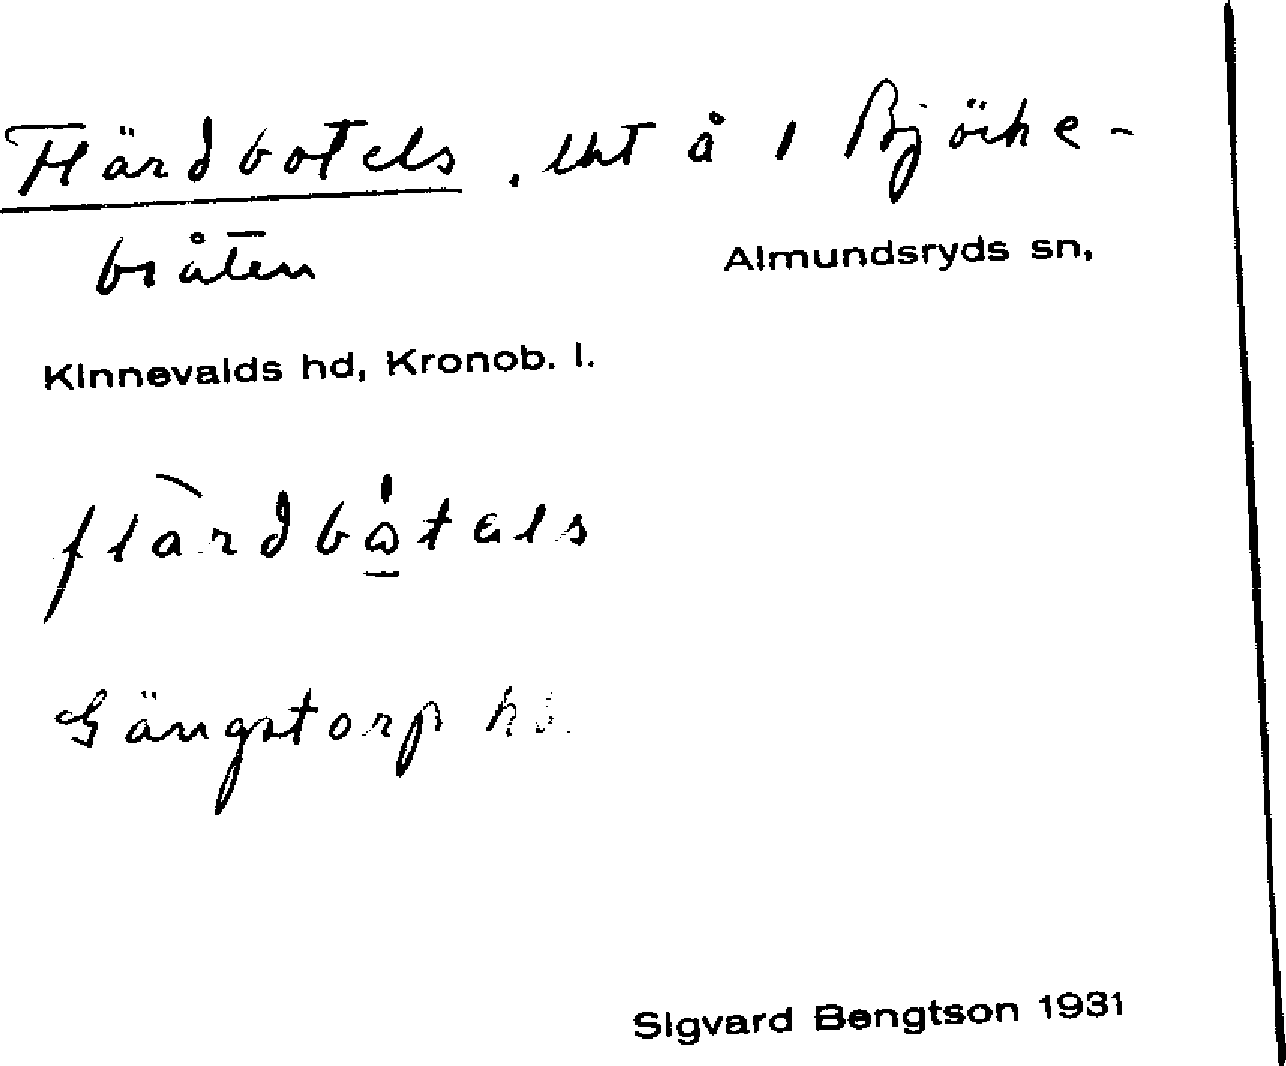 Flärdbotels, lht å 1 Björke-
bråten
Almundsryds sn,
Kinnevalds hd, Kronob. l.
Gängstorp
Sigvard Bengtson 1931